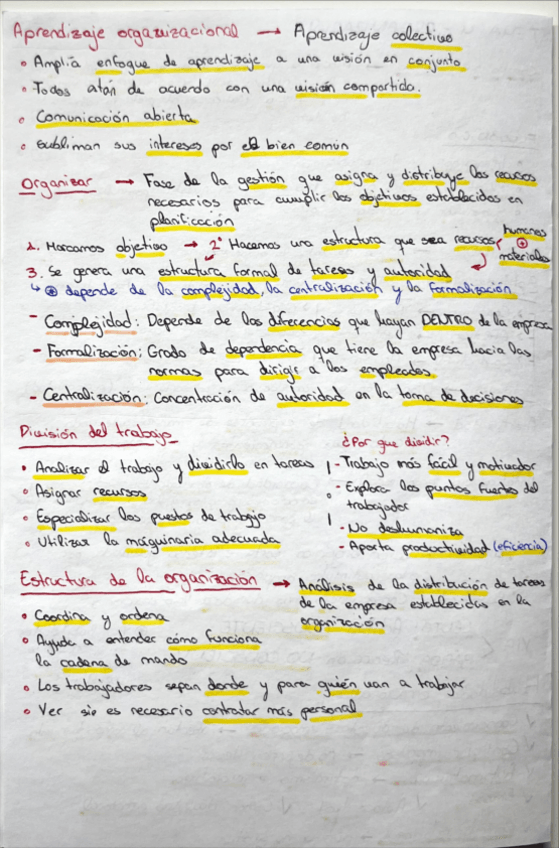 Aprendizaje organizacional → Aprendizaje colectivo
• Amplía enfoque de aprendizaje a una visión en conjunto
• Todos atán de acuerdo con una visión compartida.
• Comunicación abierta
• Subliman sus intereses por el bien común
Organizar → Fase de la gestión que asigna y distribuye los recursos
necesarios para cumplir los objetivos establecidos en
planificación
1. Marcamos objetivo → 2º Hacemos una estructura que sea recursos humanos + materiales
3. Se genera una estructura formal de tareas y autoridad
↳ depende de la complejidad, la centralización y la formalización
- Complejidad: Depende de las diferencias que hayan DENTRO de la empresa
- Formalización: Grado de dependencia que tiene la empresa hacia las
normas para dirigir a los empleados.
- Centralización: Concentración de autoridad en la toma de decisiones
División del trabajo
• Analizar el trabajo y dividirlo en tareas
• Asignar recursos
• Especializar los puestos de trabajo
• Utilizar la maquinaria adecuada
¿Por que dividir?
- Trabajo más fácil y motivador
- Explora los puntos fuertes del
trabajador
- No deshumaniza
- Aporta productividad (eficiencia)
Estructura de la organización → Análisis de la distribución de tareas
de la empresa establecidas en la
organización
• Coordina y ordena
• Ayuda a entender cómo funciona
la cadena de mando
• Los trabajadores sepan donde y para quién van a trabajar
• Ver sie es necesario contratar más personal